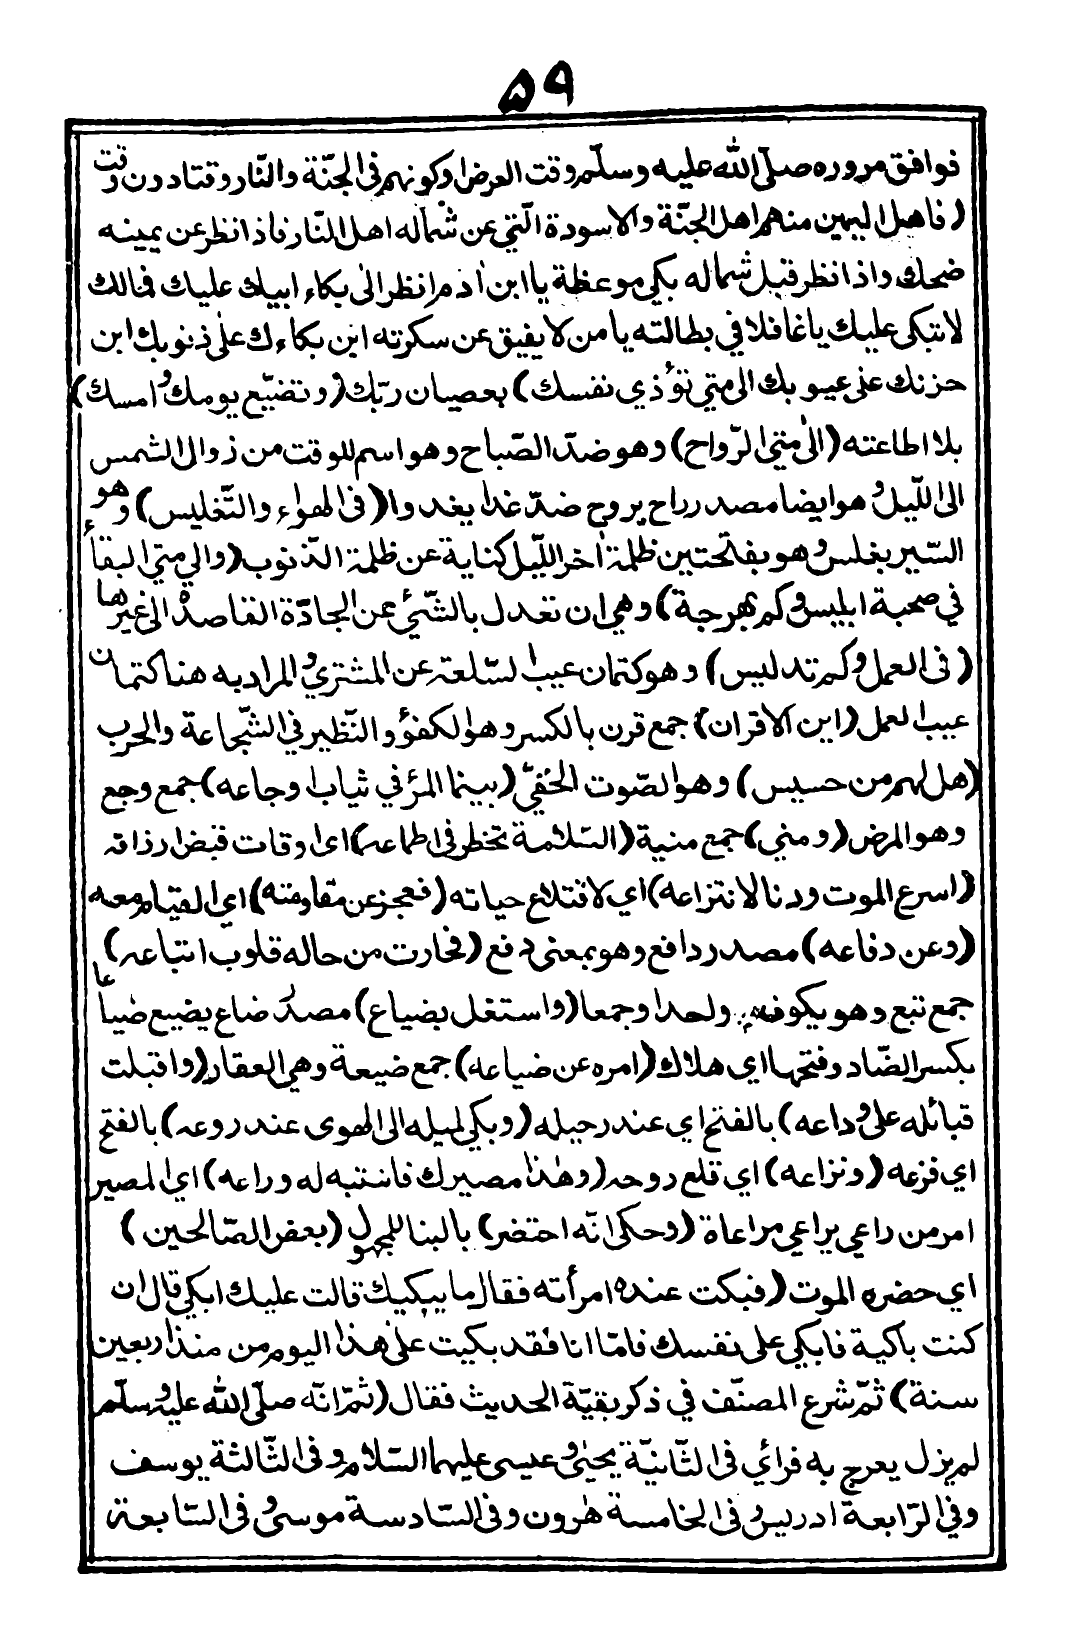 ٥٩
فوافق مروره صلّى اللّه عليه وسلّم وقت العرض او كونهم فى الجنّة والنّار وقتا دون وقت
(فاهل اليمين منهم اهل الجنّة والاسودة الّتي عن شماله اهل النّار فاذا نظر عن يمينه
ضحك واذا نظر قبل شماله بكى موعظة يا ابن اٰدم انظر الى بكاء ابيك عليك فمالك
لا تبكى عليك يا غافلا في بطالته يا من لا يفيق عن سكرته اين بكاءك على ذنوبك اين
حزنك على عيوبك الى متي تؤذي نفسك) بعصيان ربّك (وتضيّع يومك وامسك)
بلا اطاعته (الى متى الرّواح) وهو ضدّ الصّباح وهو اسم للوقت من زوال الشمس
الى اللّيل وهو ايضا مصدر راح يروح ضدّ غدا يغدوا (فى الهواء والتّغليس) وهو
السّير بغلس وهو بفتحتين ظلمة اٰخر اللّيل كناية عن ظلمة الذّنوب (والي متى البقاء
في صحبة ابليس وكم بهرجة) وهي ان تعدل بالشّئ عن الجادّة القاصدة الى غيرها
(فى العمل وكم تدليس) وهو كتمان عيب السّلعة عن المشتري والمراد به هنا كتمان
عيب العمل (اين الاقران) جمع قرن بالكسر وهو الكفؤ والنّظير في الشّجاعة والحرب
(هل لهم من حسيس) وهو الصّوت الخفيّ (بينما المرؤ في ثياب اوجاعه) جمع وجع
وهو المرض (ومني) جمع منية (السّلامة تخطر فى اطماعه) اى اوقات قبض ارزاقه
(اسرع الموت ودنا لانتزاعه) اي لاقتلاع حياته (فعجز عن مقاومته) اي القيام معه
(وعن دفاعه) مصدر دافع وهو بمعنى دفع (فحارت من حاله قلوب اتباعه)
جمع تبع وهو يكون واحدا وجمعا (واستغل بضياع) مصدر ضاع يضيع ضياعا
بكسر الضّاد وفتحها اى هلاك (امره عن ضياعه) جمع ضيعة وهي العقار (واقبلت
قبائله على وداعه) بالفتح اي عند رحيله (وبكي لميله الى الهوى عند روعه) بالفتح
اي فزعه (ونزاعه) اي قلع روحه (وهذا مصيرك فانتبه له وراعه) اي المصير
امر من راعي يراعي مراعاة (وحكى انّه احتضر) بالبنا للمجهول (بعض الصّالحين)
اي حضره الموت (فبكت عنده امرأته فقال ما يبكيك قالت عليك ابكي قال ان
كنت باكية فابكي على نفسك فامّا انا فقد بكيت على هذا اليوم من منذ اربعين
سنة) ثمّ شرع المصنّف في ذكر بقيّة الحديث فقال (ثمّ انّه صلّى اللّه عليه وسلّم
لم يزل يعرج به فرائي فى الثّانيّة يحيٰى وعيسى عليهما السّلام وفى الثّالثة يوسف
وفي الرّابعة ادريس وفى الخامسة هٰرون وفى السّادسة موسى وفى السّابعة